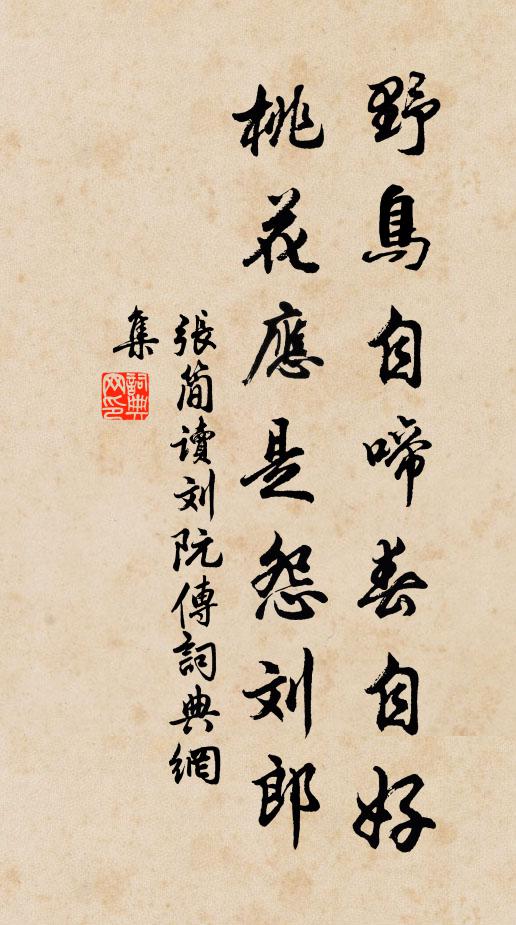 野鳥自啼春自好
桃花應是怨刘郎
張簡讀刘阮傳詞典網
集
詞典
网印